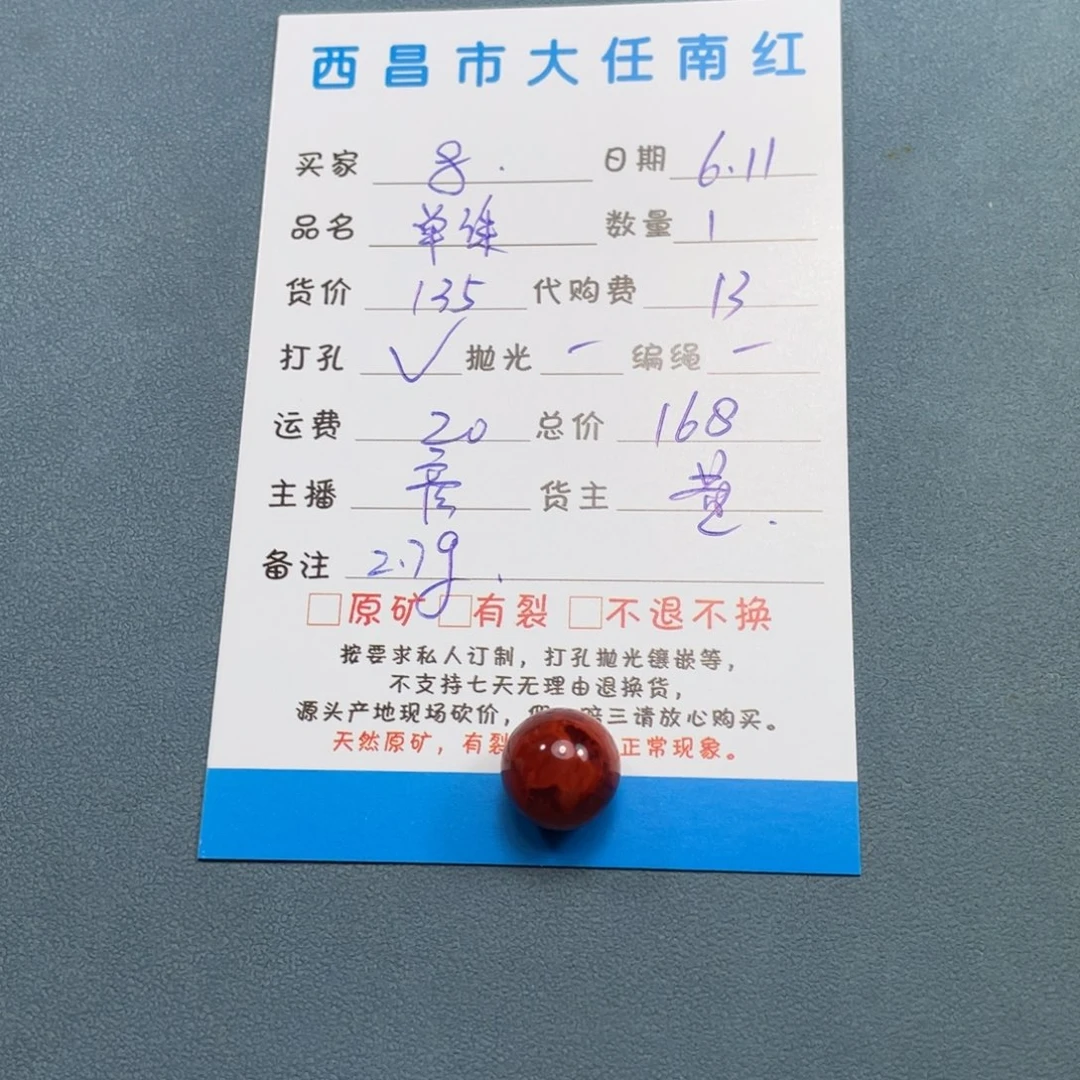 西昌市大任南红
买家 8. 日期 6.11
品名 单珠 数量 1
货价 135 代购费 13
打孔 ✓ 抛光 一 编绳 一
运费 20 总价 168
主播 货主 黄.
备注 2.7g.
□原矿 □有裂 □不退不换
按要求私人订制，打孔抛光镶嵌等，
不支持七天无理由退换货，
源头产地现场砍价，假 赔三请放心购买。
天然原矿，有裂 正常现象。